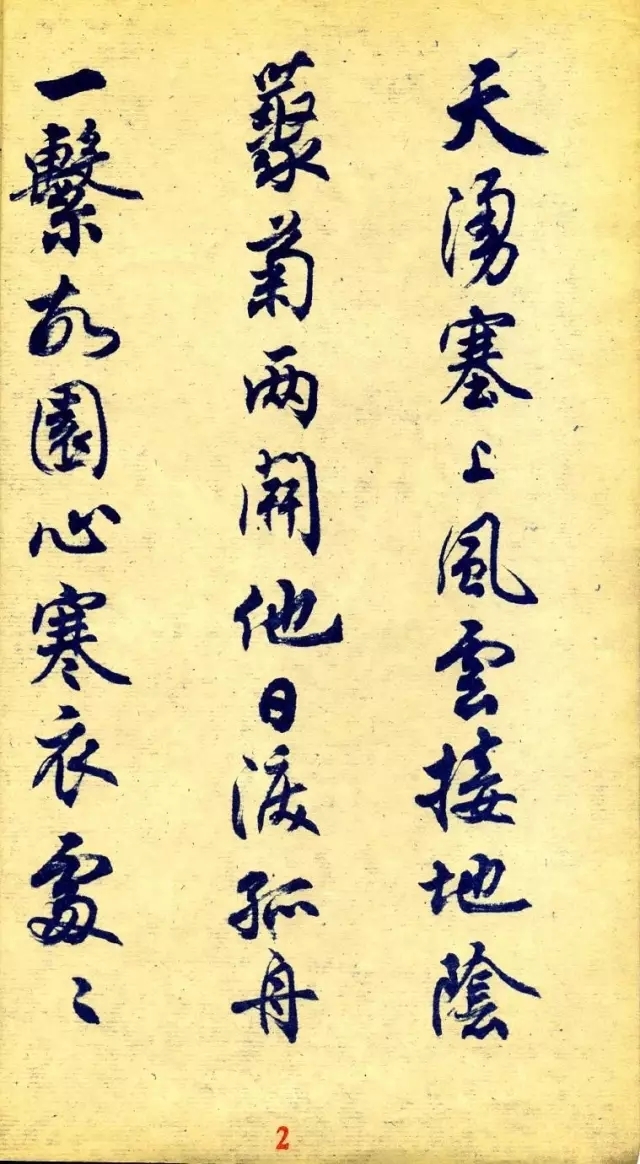 天湧塞上風雲接地陰
叢菊兩開他日淚孤舟
一繫故園心寒衣處〻
2